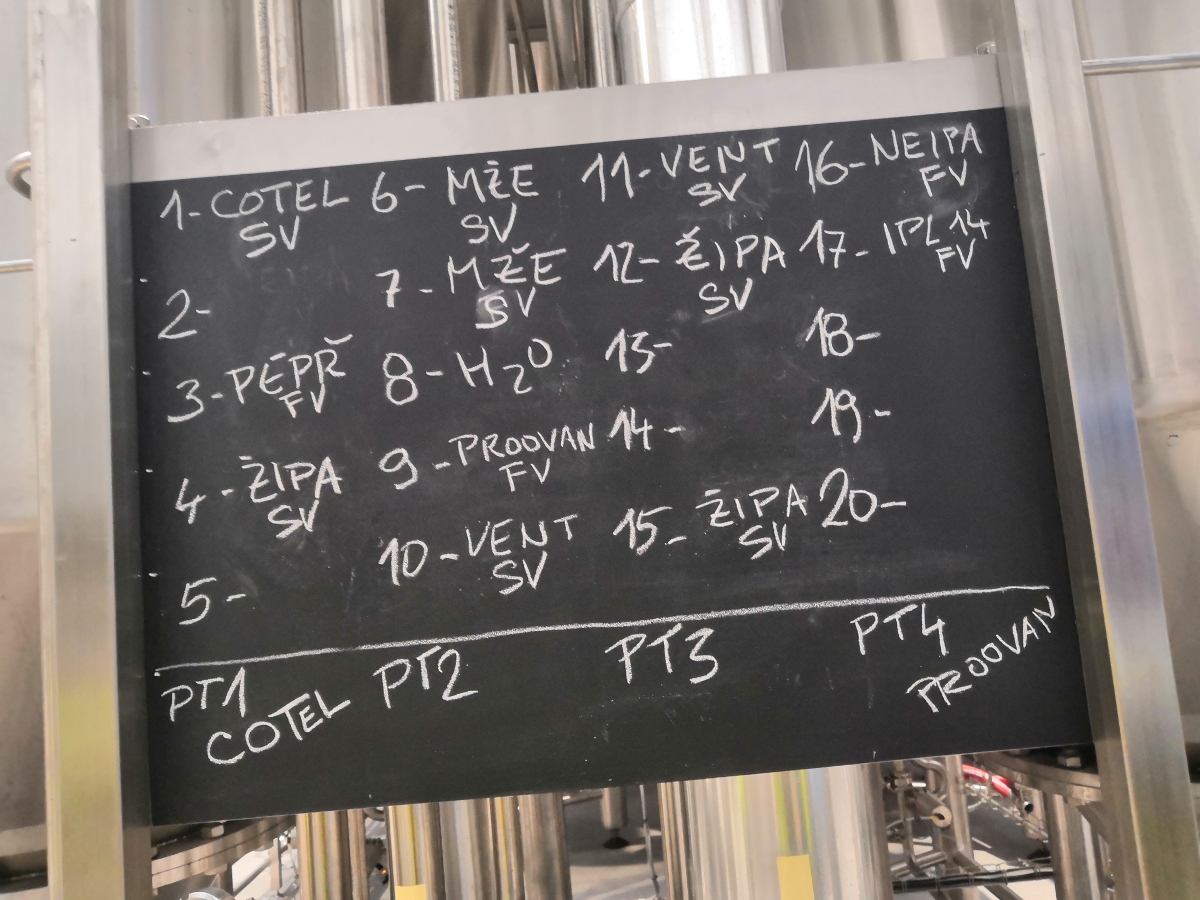 1- COTEL
SV
2-
3- PEPŘ
FV
4- ŽIPA
SV
5-
6- MŽE
SV
7- MŽE
SV
8- H2O
9- PROOVAN
FV
10- VENT
SV
11- VENT
SV
12- ŽIPA
SV
13-
14-
15- ŽIPA
SV
16- NEIPA
FV
17- IPL 14
FV
18-
19-
20-
PT1
COTEL
PT2
PT3
PT4
PROOVAN